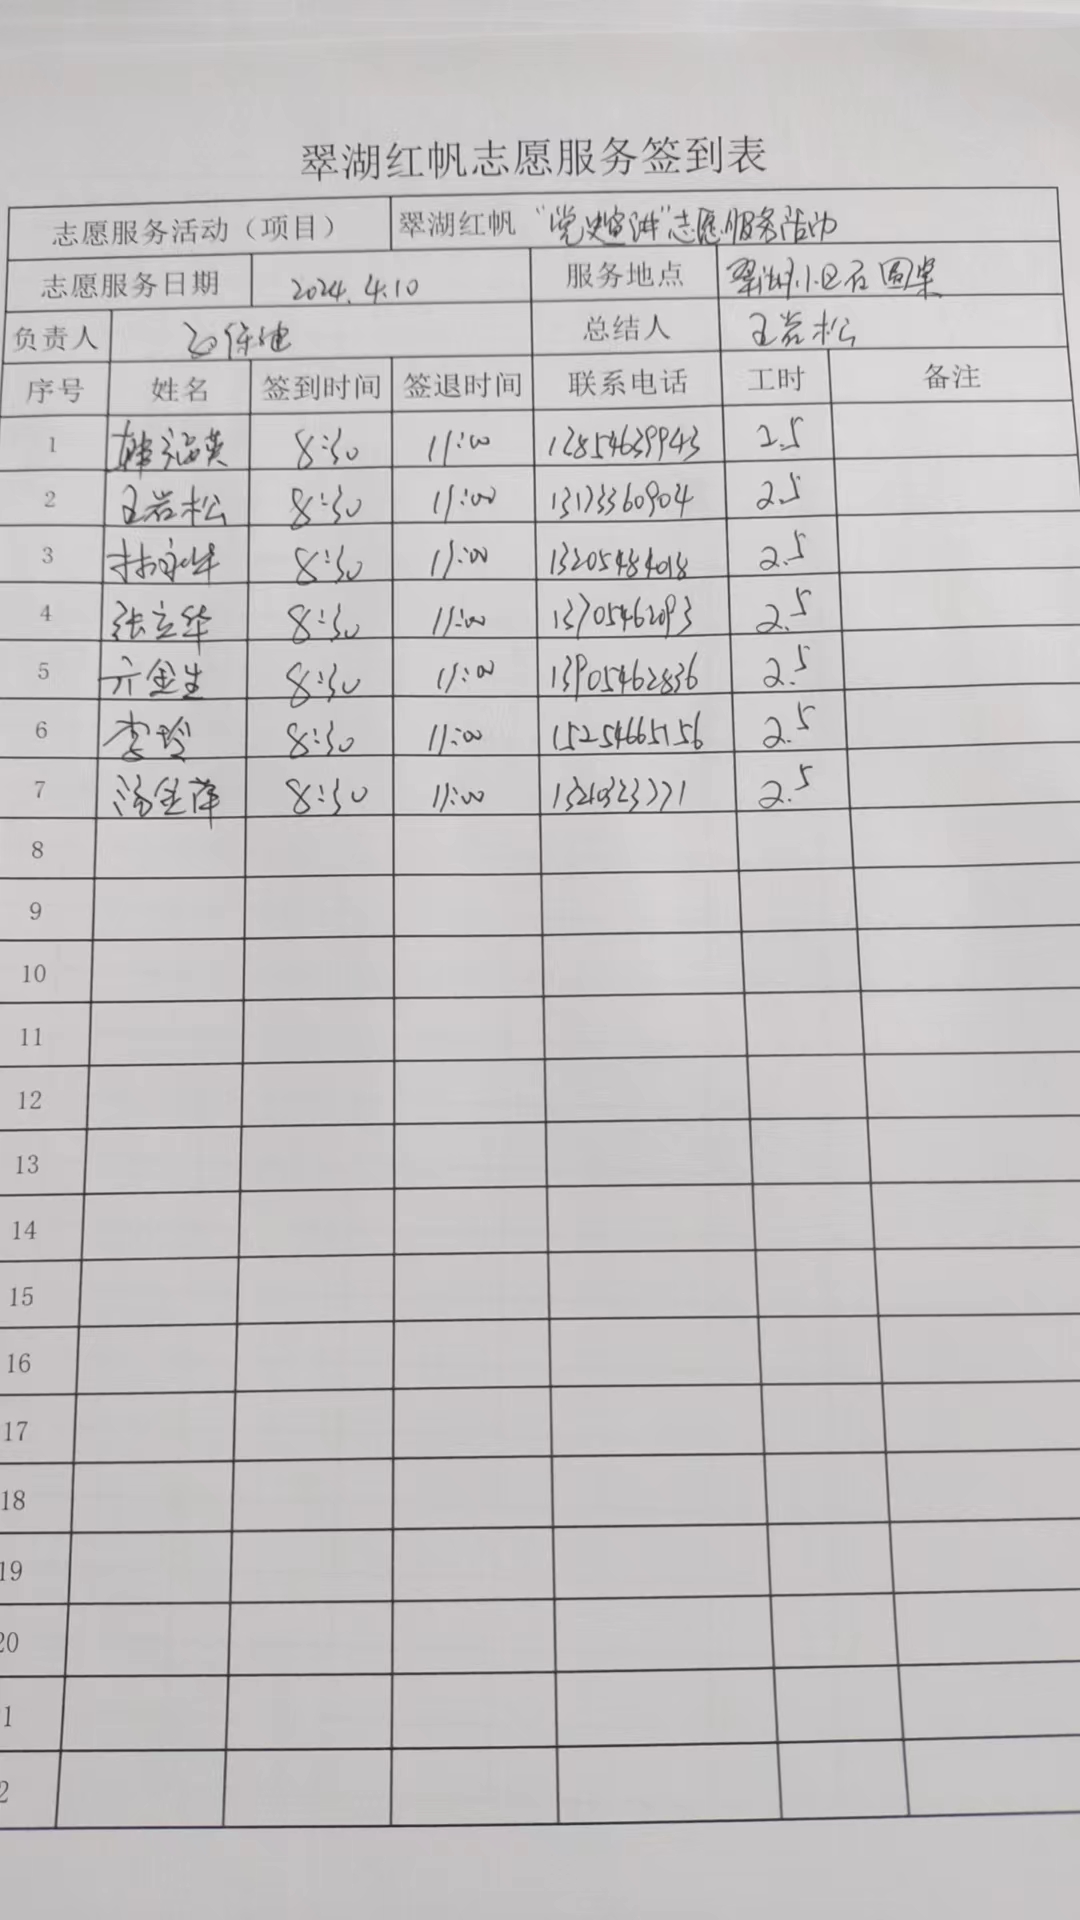 翠湖红帆志愿服务签到表
志愿服务活动（项目） 翠湖红帆 “党史宣讲”志愿服务活动
志愿服务日期 2024.4.10 服务地点 翠湖小区石圆桌
负责人 总结人 王岩松
序号 姓名 签到时间 签退时间 联系电话 工时 备注
1 韩福英 8:30 11:00 13854639943 2.5
2 王岩松 8:30 11:00 13173360904 2.5
3 8:30 11:00 13205484018 2.5
4 张立华 8:30 11:00 13705462093 2.5
5 亓金生 8:30 11:00 13905462836 2.5
6 李玲 8:30 11:00 15254665156 2.5
7 汤金萍 8:30 11:00 2.5
8
9
10
11
12
13
14
15
16
17
18
19
20
1
2